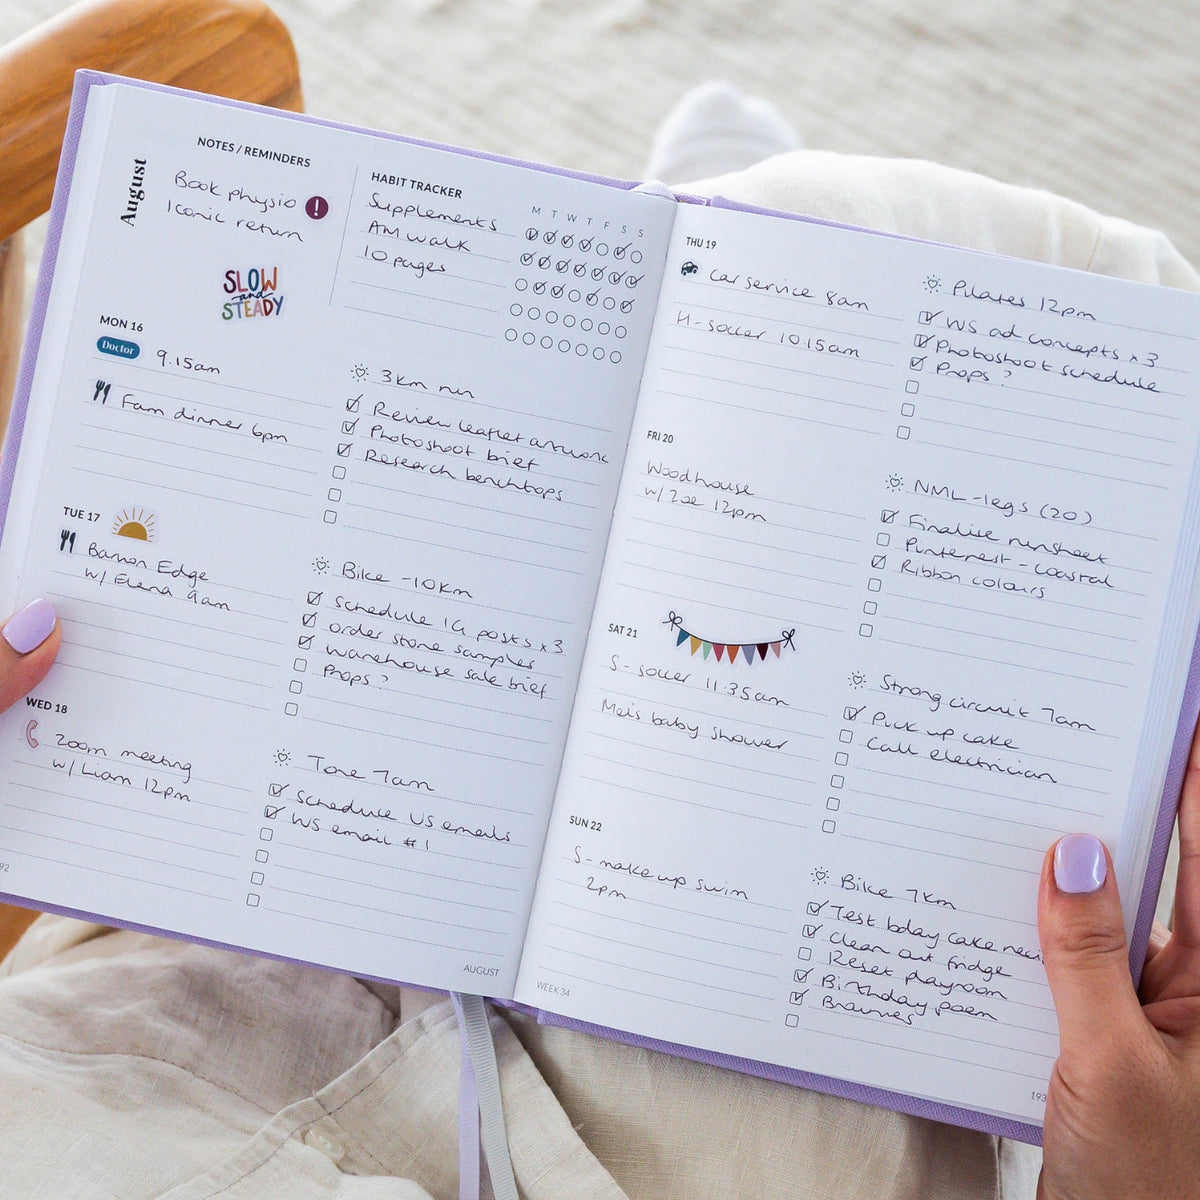 August
NOTES / REMINDERS
Book physio !
Iconic return
SLOW
and
STEADY
HABIT TRACKER
M T W T F S S
Supplements
AM walk
10 pages
MON 16
Doctor 9.15am
Fam dinner 6pm
3km run
Review leaflet artwork
Photoshoot brief
Research benchtops
TUE 17
Barron Edge
w/ Elena 9am
Bike - 10km
Schedule IG posts x 3
order stone samples
warehouse sale brief
Props ?
WED 18
Zoom meeting
w/ Liam 12pm
Tone 7am
Schedule US emails
WS email #1
92
AUGUST
THU 19
Car service 8am
H - soccer 10.15am
Pilates 12pm
WS ad concepts x 3
Photoshoot schedule
Props ?
FRI 20
Woodhouse
w/ Zoe 12pm
NML - legs (20)
Finalise runsheet
Pinterest - coastal
Ribbon colours
SAT 21
S - soccer 11.35am
Mei's baby shower
Strong circuit 7am
Pick up cake
Call electrician
SUN 22
S - make up swim
2pm
Bike 7km
Test bday cake
Clean out fridge
Reset playroom
Birthday poem
Brownies
WEEK 34
193